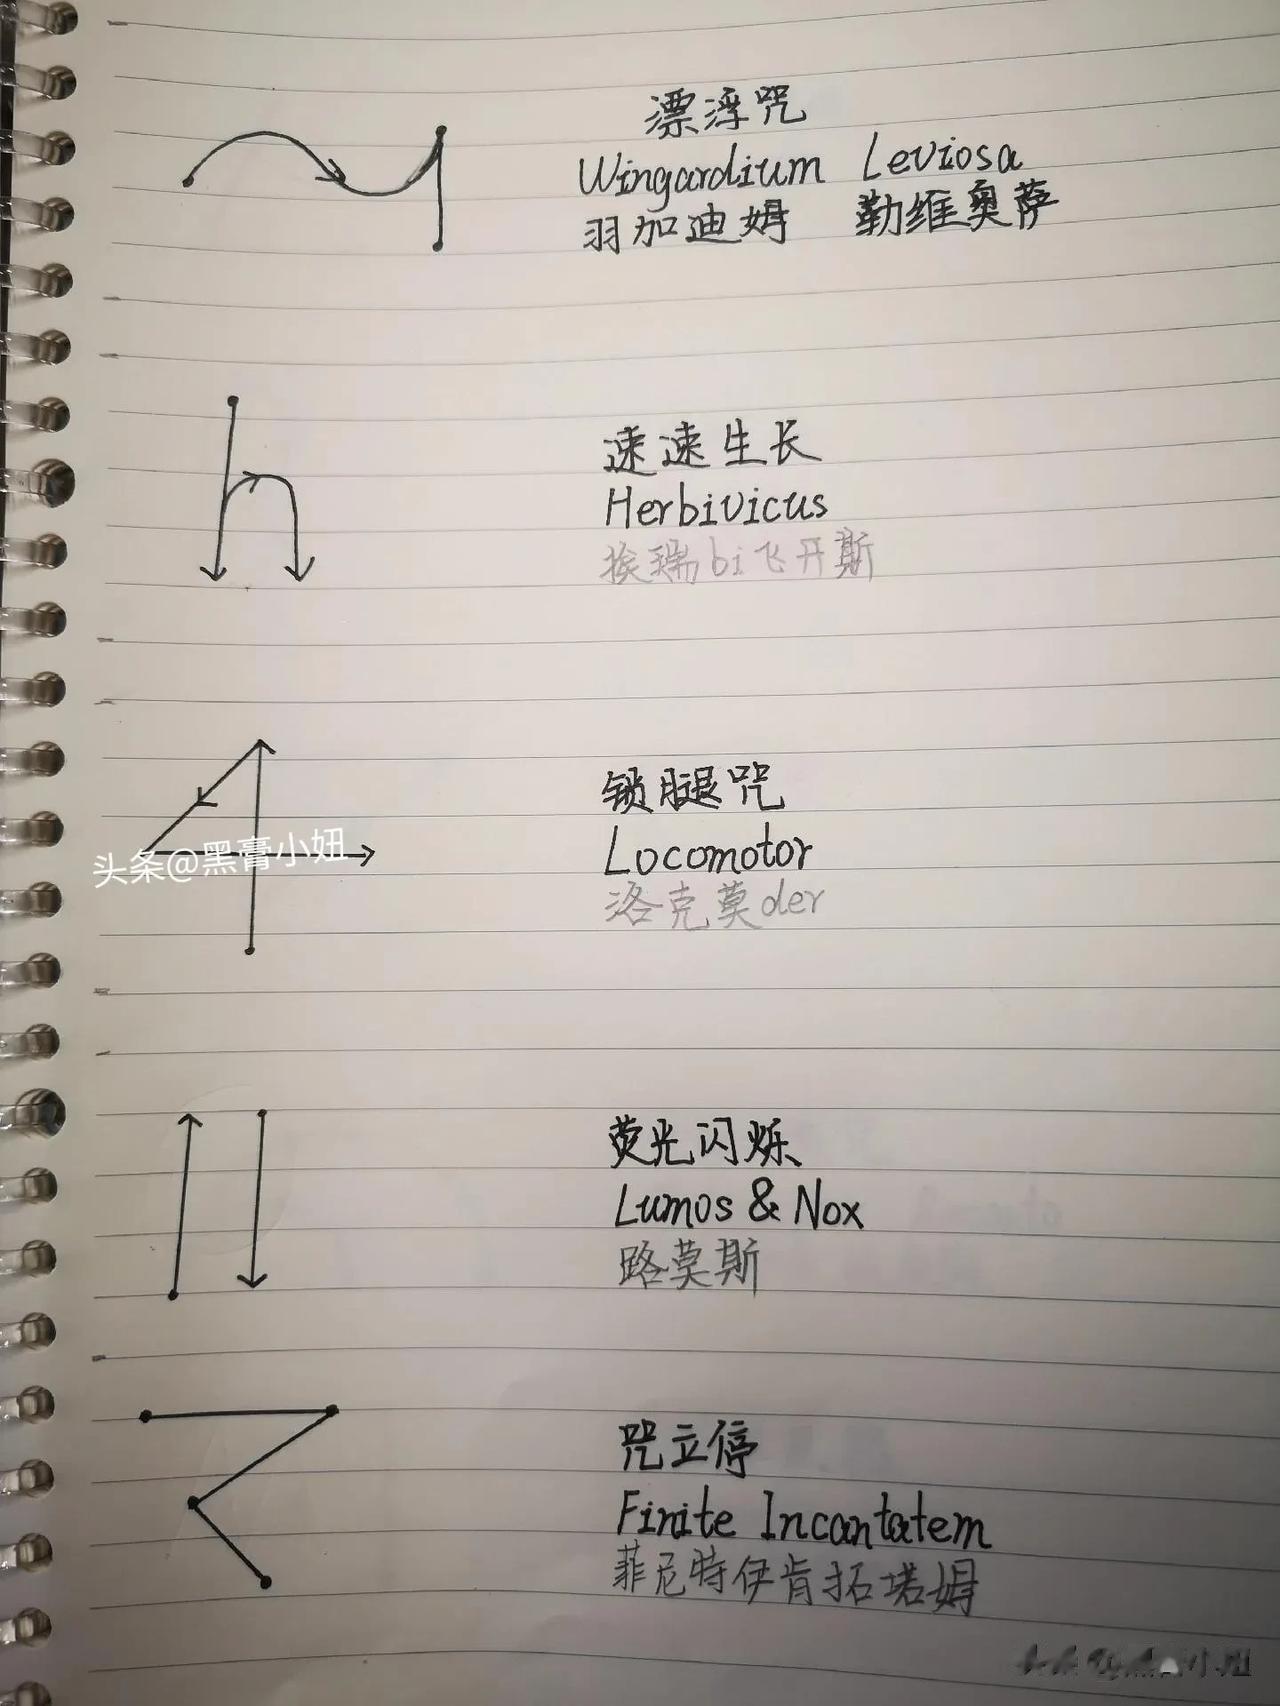 漂浮咒
Wingardium Leviosa
羽加迪姆 勒维奥萨
速速生长
Herbivicus
挨瑞bi飞开斯
锁腿咒
头条@黑膏小妞
Locomotor
洛克莫der
荧光闪烁
Lumos & Nox
路莫斯
咒立停
Finite Incantatem
菲尼特伊肯拓塔姆